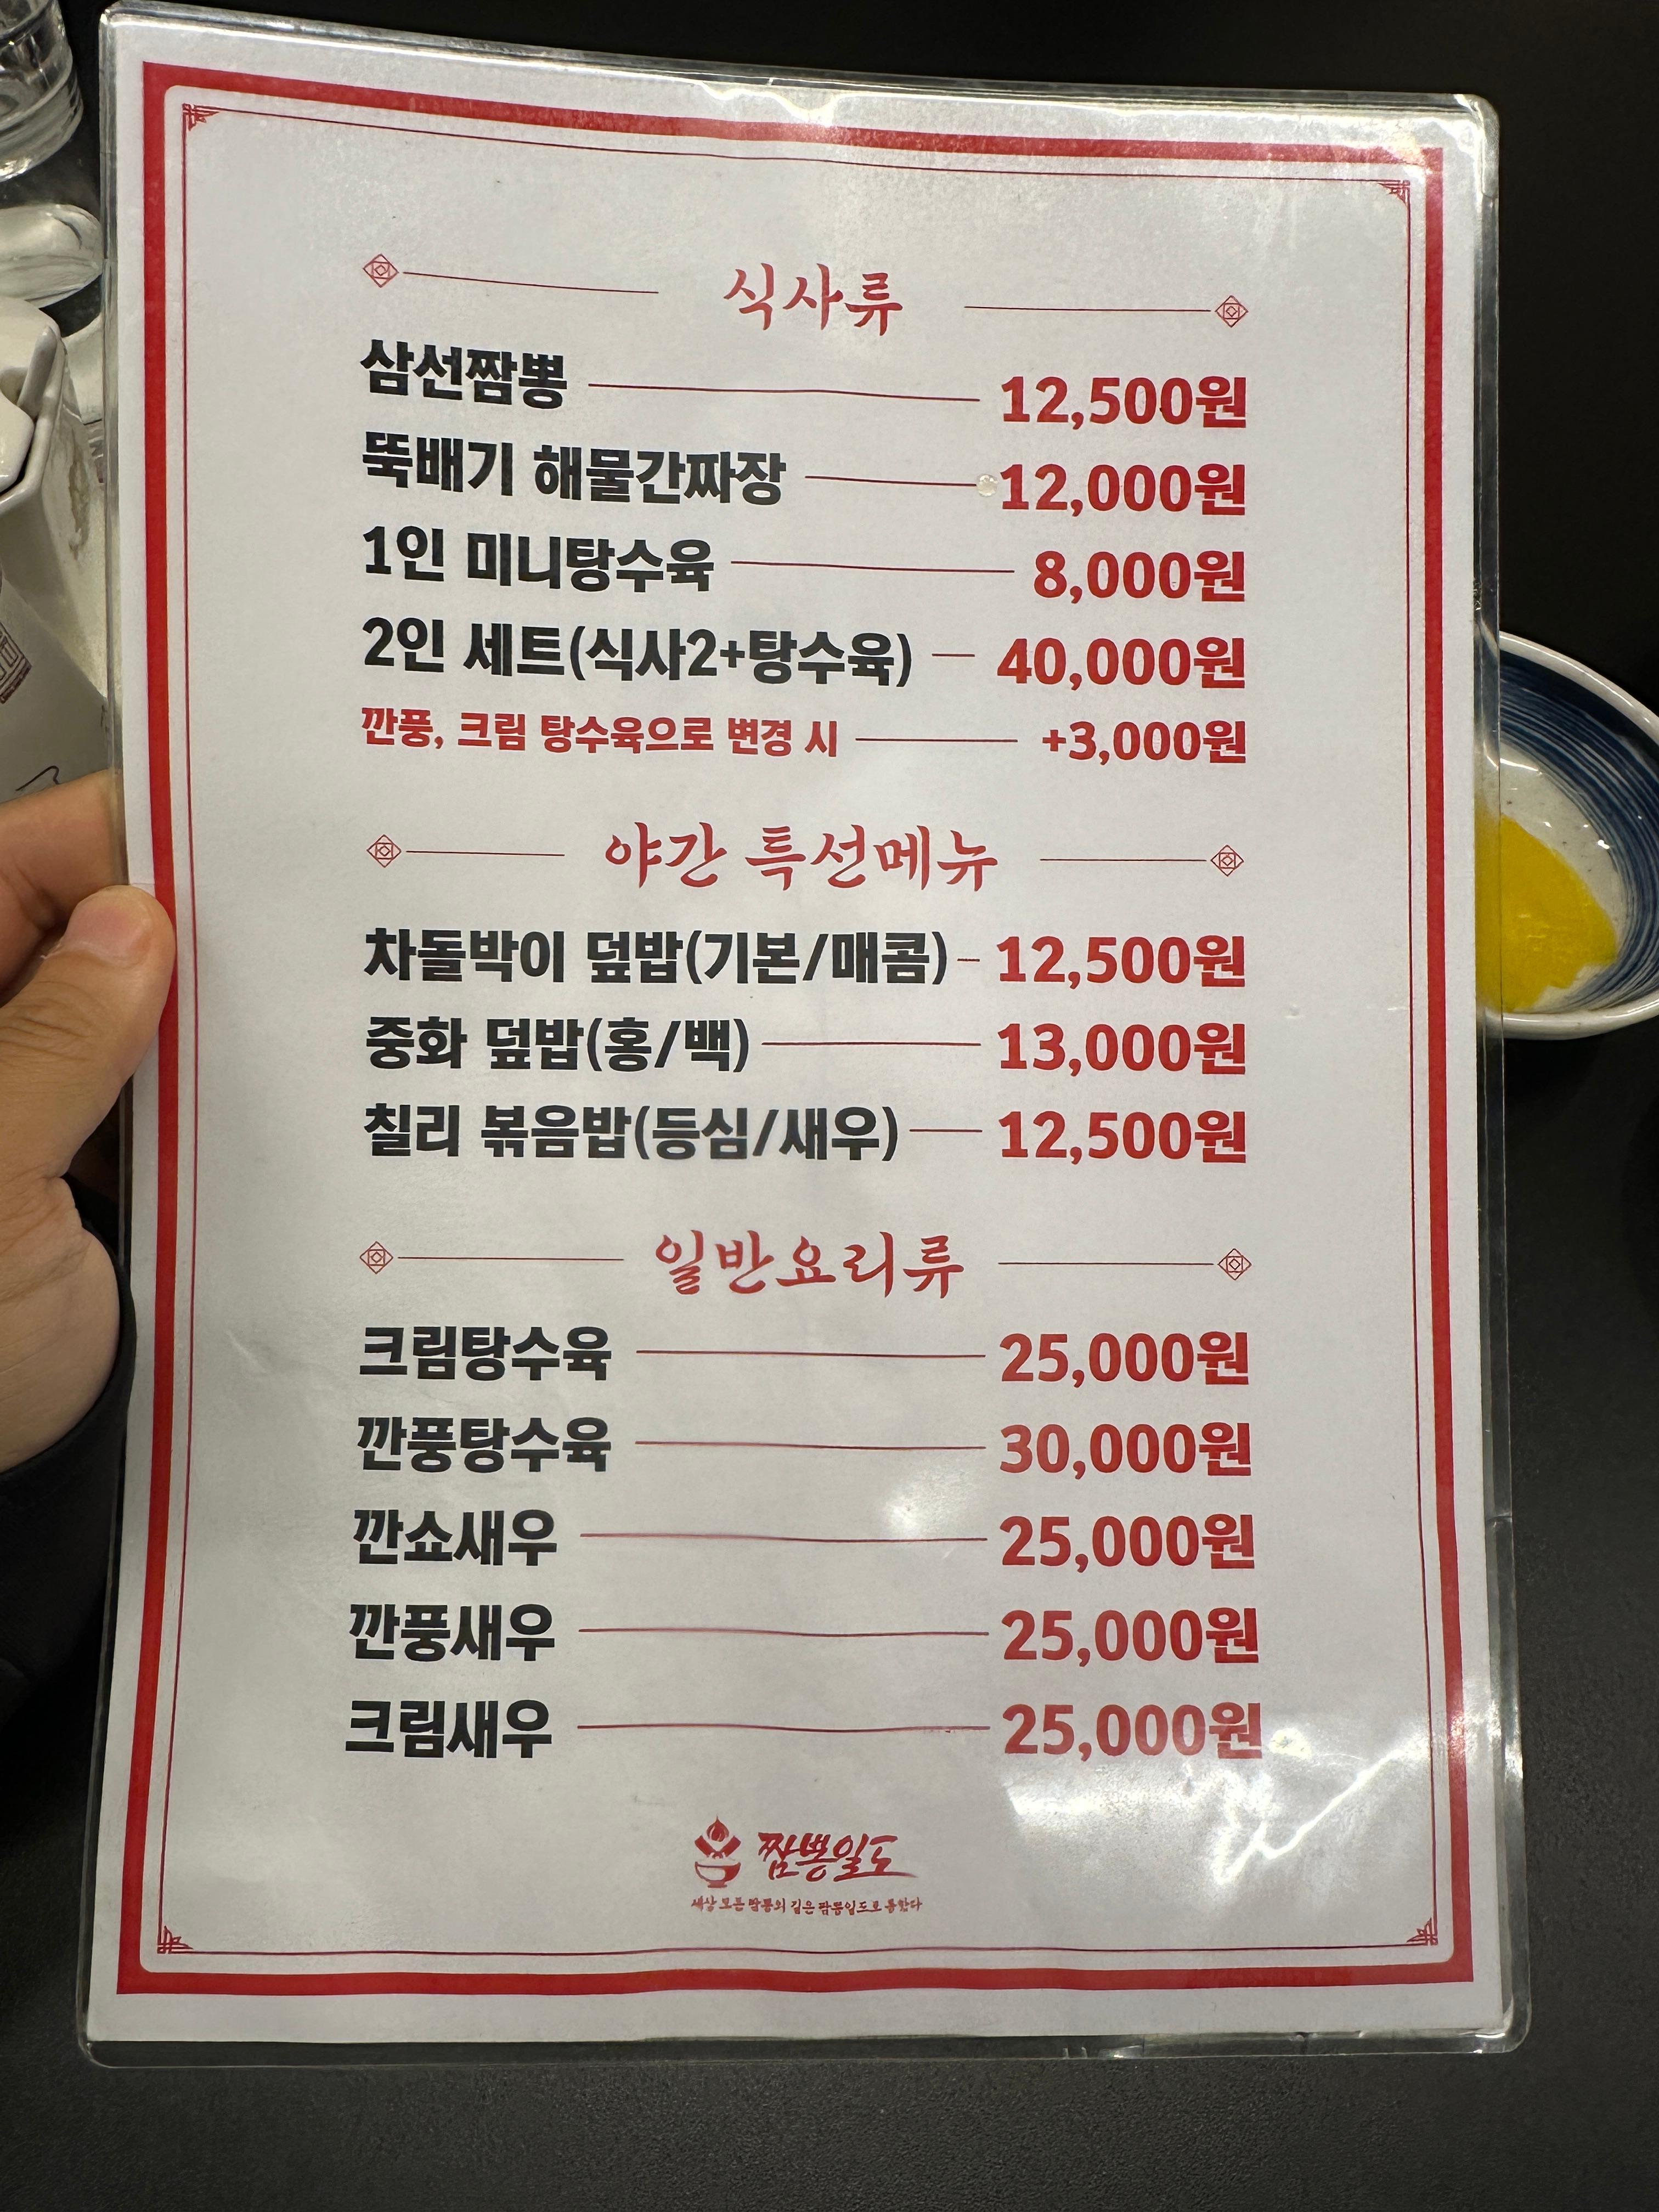 식사류
삼선짬뽕 12,500원
뚝배기 해물간짜장 12,000원
1인 미니탕수육 8,000원
2인 세트(식사2+탕수육) 40,000원
깐풍, 크림 탕수육으로 변경 시 +3,000원
야간 특선메뉴
차돌박이 덮밥(기본/매콤) 12,500원
중화 덮밥(홍/백) 13,000원
칠리 볶음밥(등심/새우) 12,500원
일반요리류
크림탕수육 25,000원
깐풍탕수육 30,000원
깐쇼새우 25,000원
깐풍새우 25,000원
크림새우 25,000원
짬뽕일도
세상 모든 짬뽕의 길은 짬뽕일도로 통한다